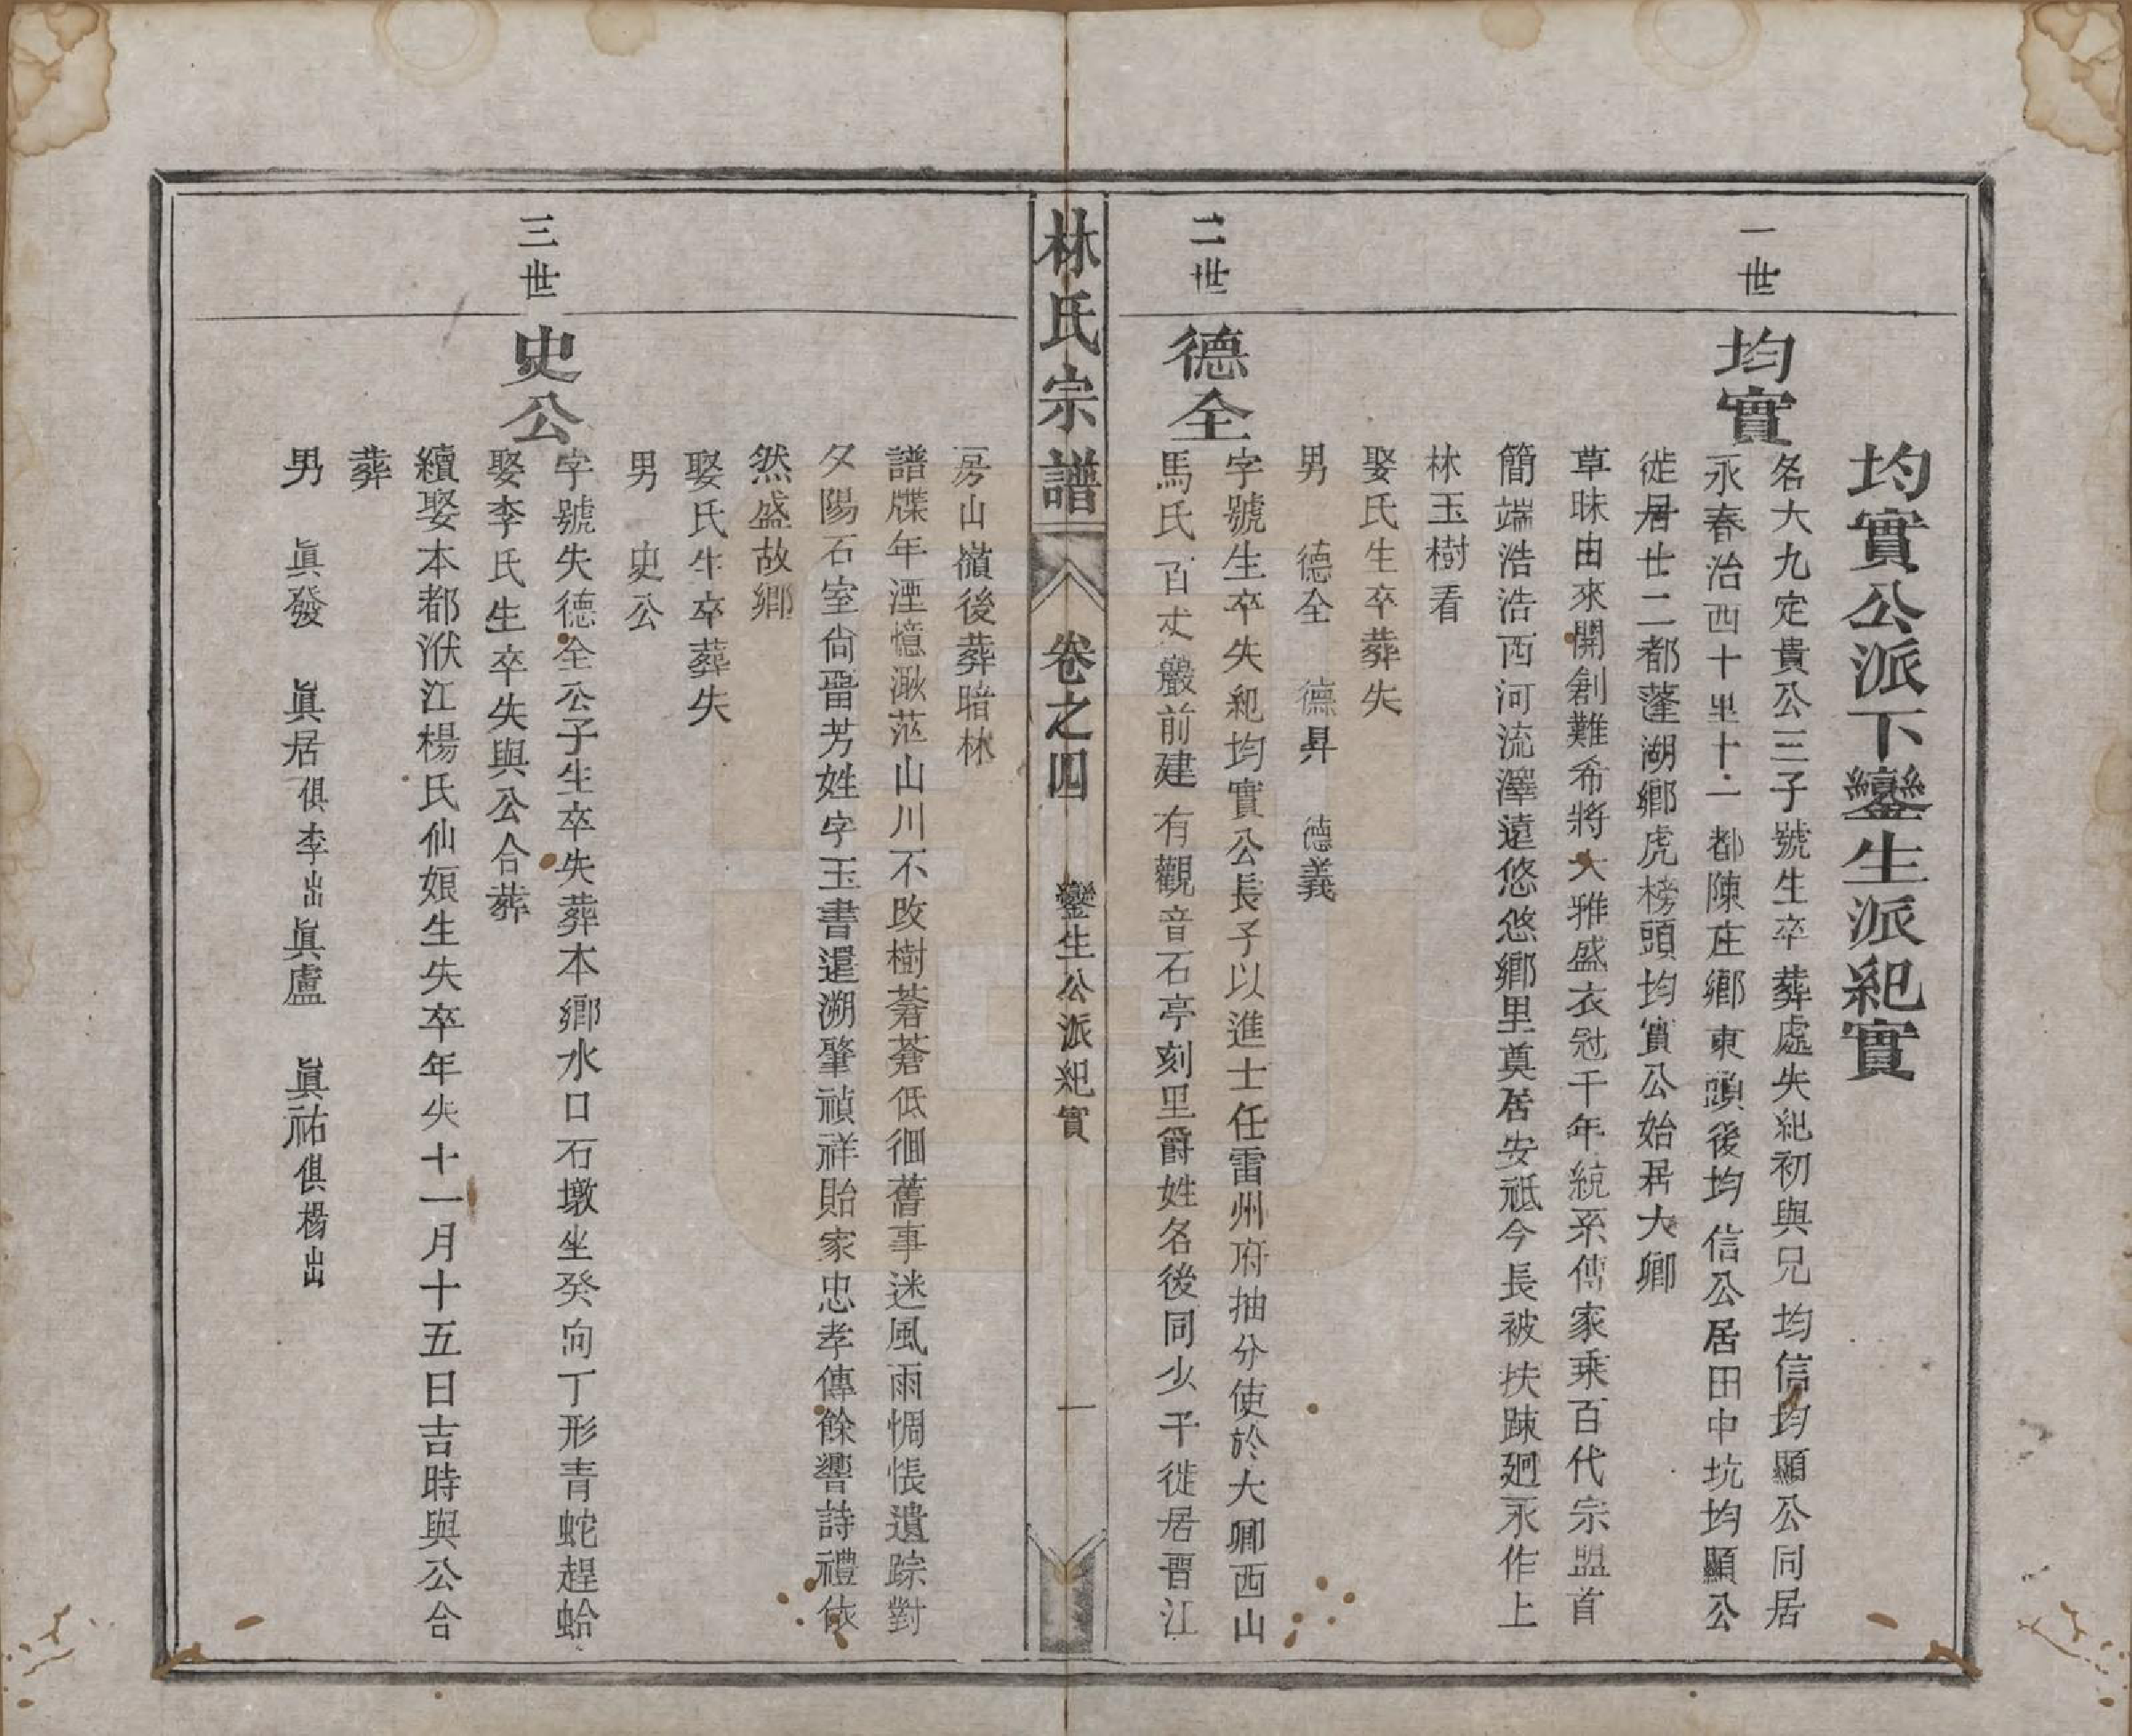 均實公派下鑾生派紀實
一世
均實
名大九定貴公三子號生卒葬處失紀初與兄均信均顯公同居
永春治西十里十二都陳庄鄉東頭後均信公居田中坑均顯公
徙居廿二都蓬湖鄉虎榜頭均實公始居大卿
草昧由來開創難希將大雅盛衣冠千年統系傳家乘百代宗盟首
簡端浩浩西河流澤遠悠悠鄉里奠居安祗今長被扶踈廻永作上
林玉樹看
娶氏生卒葬失
男 德全 德昇 德義
二世
德全
字號生卒失紀均實公長子以進士任雷州府抽分使於大卿西山
馬氏百丈巖前建有觀音石亭刻里爵姓名後同少子徙居晋江
林氏宗譜 卷之四 鑾生公派紀實 一
房山嶺後葬暗林
譜牒年湮憶渺茫山川不改樹蒼蒼低徊舊事迷風雨惆悵遺踪對
夕陽石室尙畱芳姓字玉書還溯肇禎祥貽家忠孝傳餘響詩禮依
然盛故鄉
娶氏生卒葬失
男 史公
三世
史公
字號失德全公子生卒失葬本鄉水口石墩坐癸向丁形青蛇趕蛤
娶李氏生卒失與公合葬
續娶本都洑江楊氏仙娘生失卒年失十一月十五日吉時與公合
葬
男 眞發 眞居俱李出眞盧 眞祐俱楊出